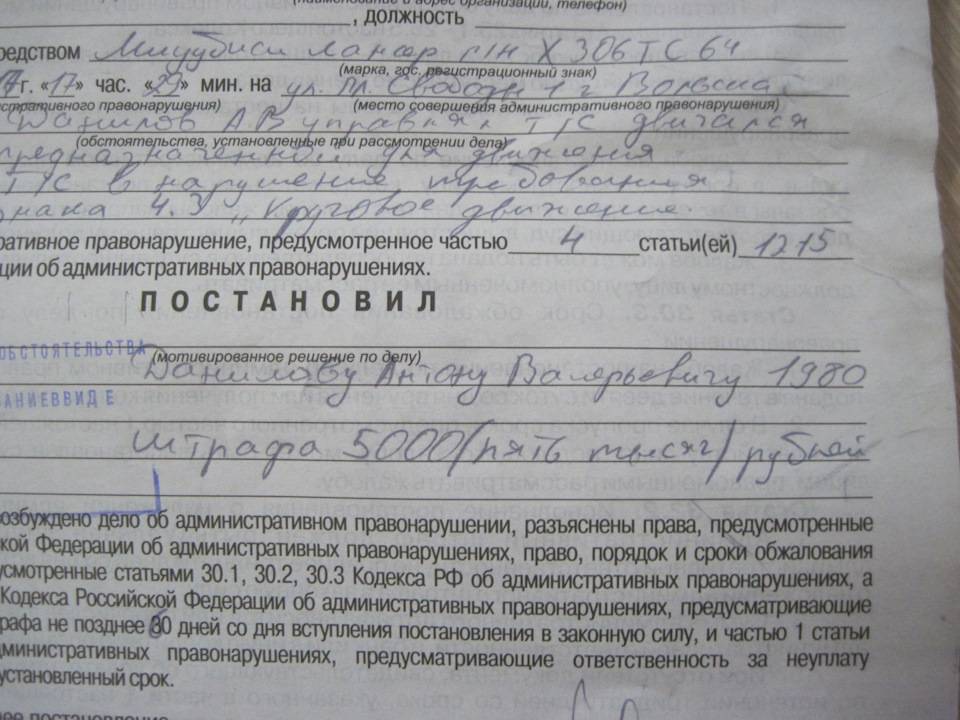 (наименование и адрес организации, телефон)
, должность
редством Мицубиси Лансер г/н Х306ТС64
(марка, гос. регистрационный знак)
г. «17» час. «29» мин. на ул. Пл. Свободы 1 г Вольска
истративного правонарушения) (место совершения административного правонарушения)
Данилов А.В управляя Т/С двигался
(обстоятельства, установленные при рассмотрении дела)
предназначенной для движения
Т/С в нарушение требования
знака 4.3 „Круговое движение.
ративное правонарушение, предусмотренное частью 4 статьи(ей) 12 15
ции об административных правонарушениях.
ПОСТАНОВИЛ
ОБСТОЯТЕЛЬСТВА
(мотивированное решение по делу)
Данилову Антону Валерьевичу 1980
АНИЕ В ВИДЕ
штрафа 5000 (пять тысяч) рублей
озбуждено дело об административном правонарушении, разъяснены права, предусмотренные
кой Федерации об административных правонарушениях, право, порядок и сроки обжалования
усмотренные статьями 30.1, 30.2, 30.3 Кодекса РФ об административных правонарушениях, а
Кодекса Российской Федерации об административных правонарушениях, предусматривающие
рафа не позднее 60 дней со дня вступления постановления в законную силу, и частью 1 статьи
дминистративных правонарушениях, предусматривающие ответственность за неуплату
установленный срок.
ее постановление